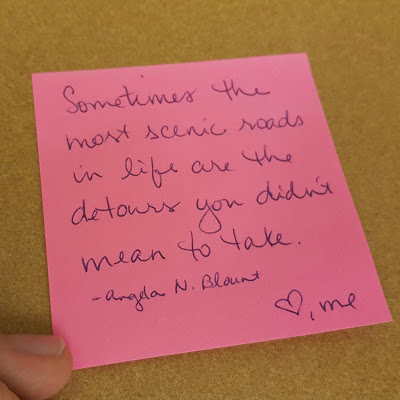 Sometimes the
most scenic roads
in life are the
detours you didn't
mean to take.
-Angela N. Blount
♡, me